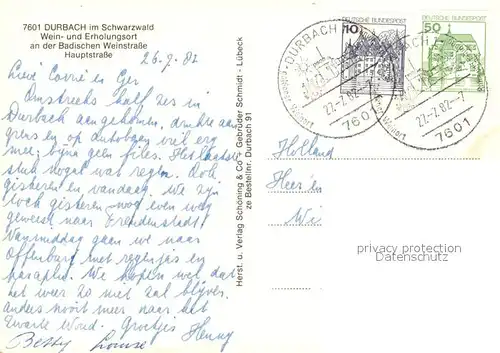 7601 DURBACH im Schwarzwald
Wein- und Erholungsort
an der Badischen Weinstraße
Hauptstraße
26-7-82
Lieve Corrie en Ger
Omstreeks half zes in
Durbach aangekomen, drukte aan
grens en op autobaan viel erg
mee, bijna geen files. Het laatste
stuk nogal wat regen. Ook
gisteren en vandaag. We zijn
toch gisteren nog even weg
geweest naar Freudenstadt.
Vanmiddag gaan we naar
Offenburg met regenjas en
paraplu. We hopen wel dat
het weer zo niet zal blijven.
anders nooit meer naar het
Zwarte Woud. Groetjes Henny
Betty Louise
Herst. u. Verlag Schöning & Co + Gebrüder Schmidt - Lübeck
ze Bestellnr. Durbach 91
10 DEUTSCHE BUNDESPOST
50 DEUTSCHE BUNDESPOST
DURBACH
27.-7.82.-
7601
27.-7.82.-
7601
Holland
privacy protection